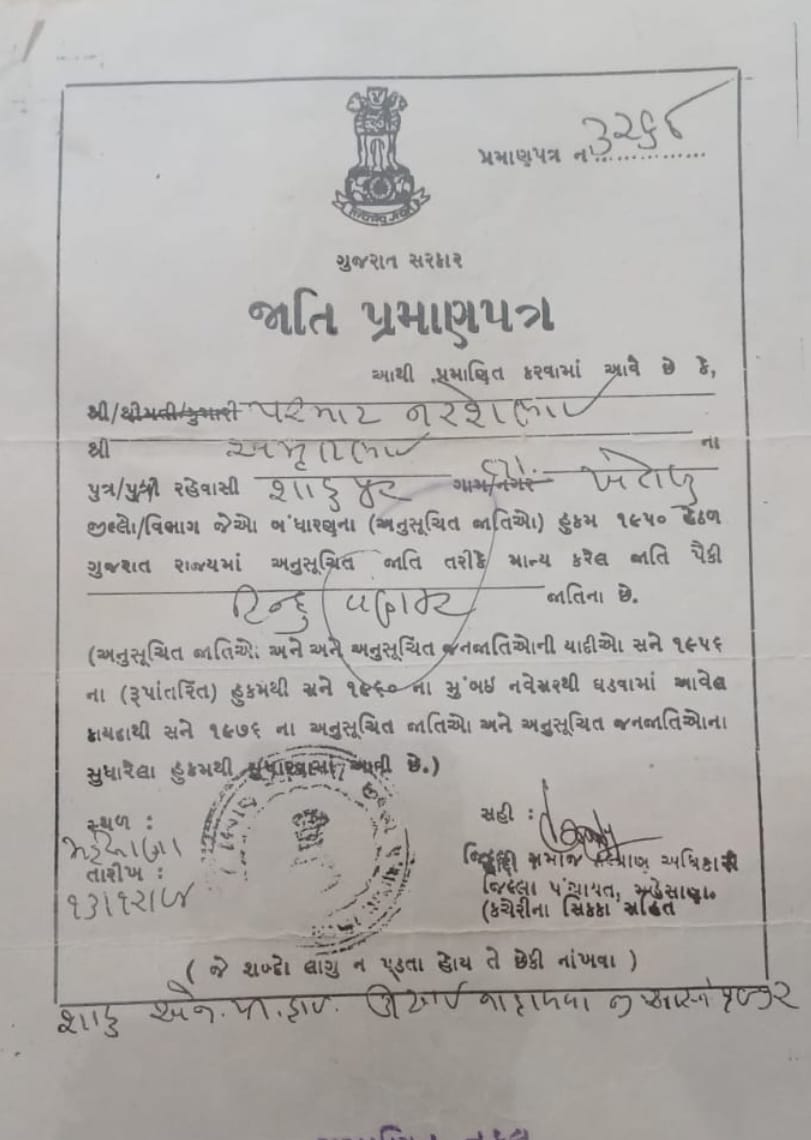 પ્રમાણપત્ર નં. ૩૨૬૪
ગુજરાત સરકાર
જાતિ પ્રમાણપત્ર
આથી પ્રમાણિત કરવામાં આવે છે કે,
શ્રી/શ્રીમતી/કુમારી પરમાર નરેશભાઈ
શ્રી અમૃતભાઈ ના
પુત્ર/પુત્રી રહેવાસી ગામ/નગર
જીલ્લો/વિભાગ જેઓ બંધારણના (અનુસૂચિત જાતિઓ) હુકમ ૧૯૫૦ હેઠળ
ગુજરાત રાજ્યમાં અનુસૂચિત જાતિ તરીકે માન્ય કરેલ જાતિ પૈકી
હિન્દુ વણકર જાતિના છે.
(અનુસૂચિત જાતિઓ અને અને અનુસૂચિત જનજાતિઓની યાદીઓ સને ૧૯૫૬
ના (રૂપાંતરિત) હુકમથી સને ૧૯૬૦ ના મુંબઇ નવેસરથી ઘડવામાં આવેલ
કાયદાથી સને ૧૯૭૬ ના અનુસૂચિત જાતિઓ અને અનુસૂચિત જનજાતિઓના
સુધારેલા હુકમથી સુધારવામાં આવી છે.)
સ્થળ :
મહેસાણા
તારીખ :
સહી :
સમાજ કલ્યાણ અધિકારી
જિલ્લા પંચાયત, મહેસાણા.
(કચેરીના સિક્કા સહિત
( જે શબ્દો લાગુ ન પડતા હોય તે છેકી નાંખવા )